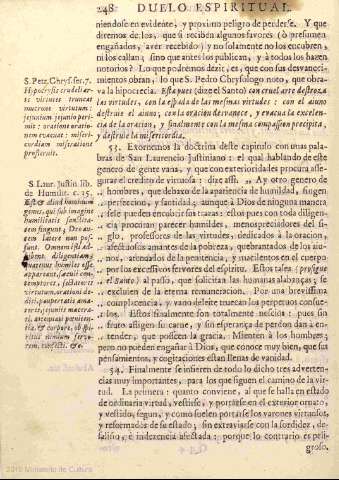 248 DUELO ESPIRITUAL
niendose en evidente, y proximo peligro de perderse. Y que
diremos de los, que si reciben algunos favores (ò presumen
engañados, aver recebido) y no solamente no los encubren,
ni los callan; sino que antes los publican, y à todos los hazen
notorios? Lo que podrèmos dezir, es, que con sus desvaneci-
mientos obran, lo que S. Pedro Chrysologo noto, que obra-
va la hipocresia. Esta pues (dize el Santo) con cruel arte destroza
las virtudes, con la espada de las mesmas virtudes: con el aiuno
destruie el aiuno, con la oracion desvanece, y evacua la excelen-
cia de la oracion, y finalmente con la mesma compassion precipita,
y destruie la misericordia.
S. Petr. Chrys. ser. 7.
Hipocrysis crudeli ar-
te virtutes truncat
mucrone virtutum:
jejunium jejunio peri-
mit: oratione oratio-
nem evacuat: miseri-
cordiam miseratione
prosternit.
53. Exornemos la doctrina deste capitulo con unas pala-
bras de San Laurencio Justiniano: el qual hablando de este
genero de gente vana, y que con exterioridades procura asse-
gurar el credito de virtuosa: dize assi. „ Ay otro genero de
„ hombres, que debaxo de la apariencia de humildad, fingen
„ perfeccion, y santidad; aunque à Dios de ninguna manera
„ se le pueden encubrir sus trazas: estos pues con toda diligen-
„ cia procuran parecer humildes, menospreciadores del si-
„ glo, professores de las virtudes, dedicados à la oracion,
„ afectuosos amantes de la pobreza, quebrantados de los aiu-
„ nos, arrendados de la penitencia, y macilentos en el cuerpo
„ por los excessivos fervores del espiritu. Estos tales (prosigue
„ el Santo) al passo, que solicitan las humanas alabanças; se
„ excluien de la eterna remuneracion. Por una brevissima
„ complacencia, y vano deleite truecan los perpetuos consue-
„ los. Estos finalmente son totalmente necios: pues sin
„ fruto afligen su carne, y sin esperança de perdon dan a en-
„ tender, que poseen la gracia. Mienten à los hombres;
pero no pueden engañar à Dios, que conoce muy bien, que sus
pensamientos, y cogitaciones estan llenas de vanidad.
S. Laur. Justin. lib.
de Humilit. c. 15.
Est & aliud hominum
genus, qui sub imagine
humilitatis sanctita-
tem fingunt; Deo au-
tem latere non pos-
sunt.
54. Finalmente se infieren de todo lo dicho tres adverten-
cias muy importantes, para los que siguen el camino de la vir-
tud. La primera: quanto conviene, al que se halla en estado
de ordinaria virtud, vestirse, y portarse en el exterior ornato,
y vestido, segun, y como suelen portarse los varones virtuosos,
y reformados de su estado; sin extraviarse con la sordidez, de-
saliño, è indecencia afectada: porque lo contrario es peli-
groso.
2010 Ministerio de Cultura